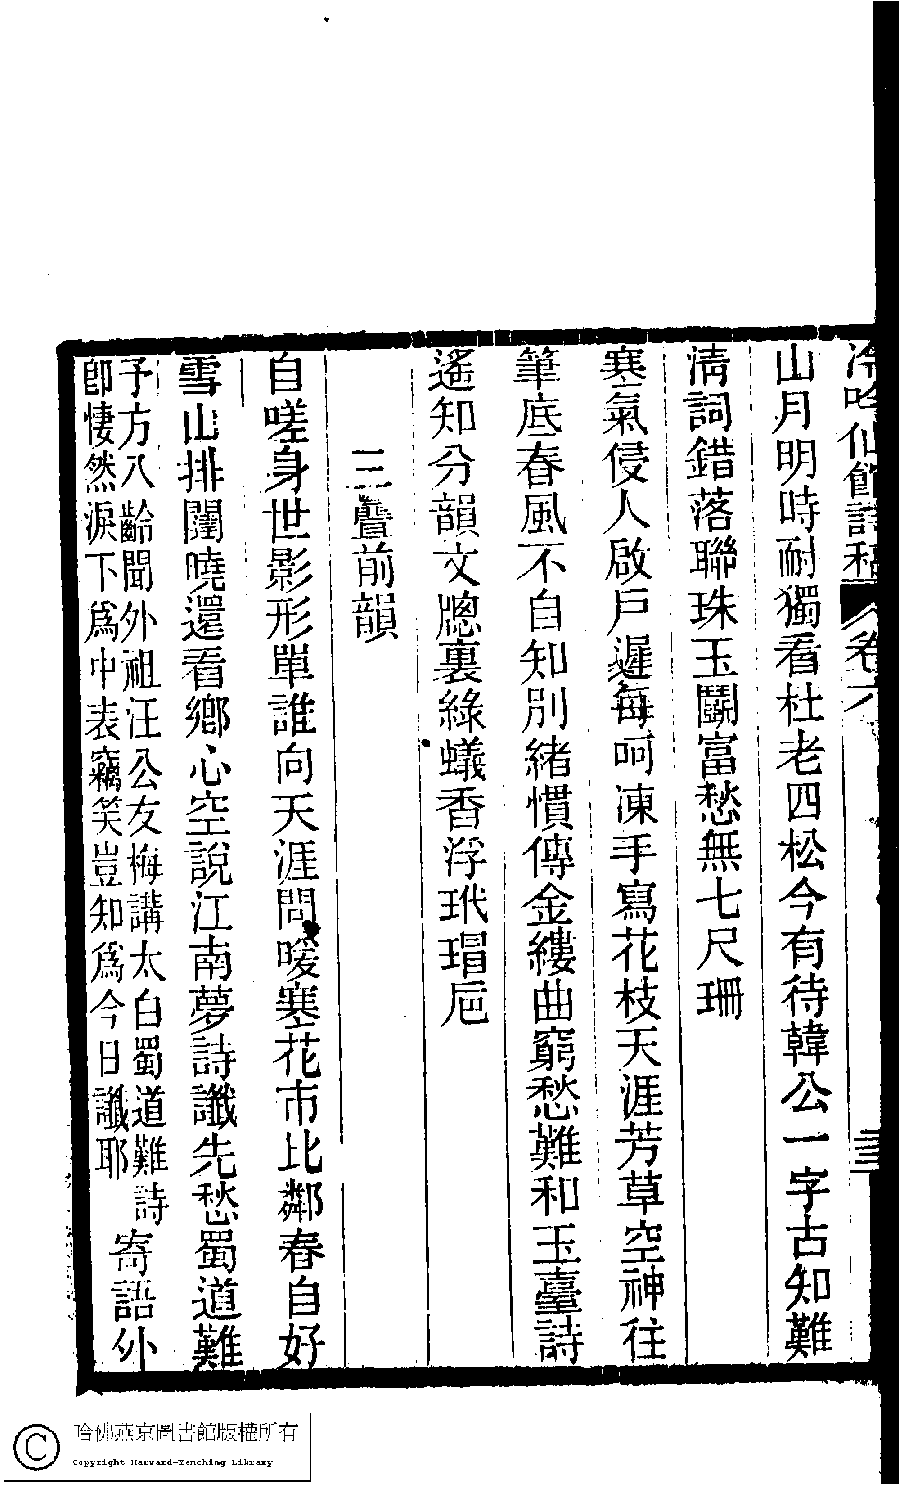 冷吟仙館詩稿 卷六
山月明時耐獨看杜老四松今有待韓公一字古知難
清詞錯落聯珠玉鬭富愁無七尺珊
寒氣侵人啟戶遲每呵凍手寫花枝天涯芳草空神往
筆底春風不自知別緒慣傳金縷曲窮愁難和玉臺詩
遙知分韻文牕裏綠蟻香浮玳瑁巵
三疊前韻
自嗟身世影形單誰向天涯問暖寒花市比鄰春自好
雪山排闥曉還看鄉心空說江南夢詩讖先愁蜀道難
予方八齡聞外祖汪公友梅講太白蜀道難詩
卽悽然淚下爲中表竊笑豈知爲今日讖耶
寄語外
哈佛燕京圖書館版權所有
Copyright Harvard-Yenching Library